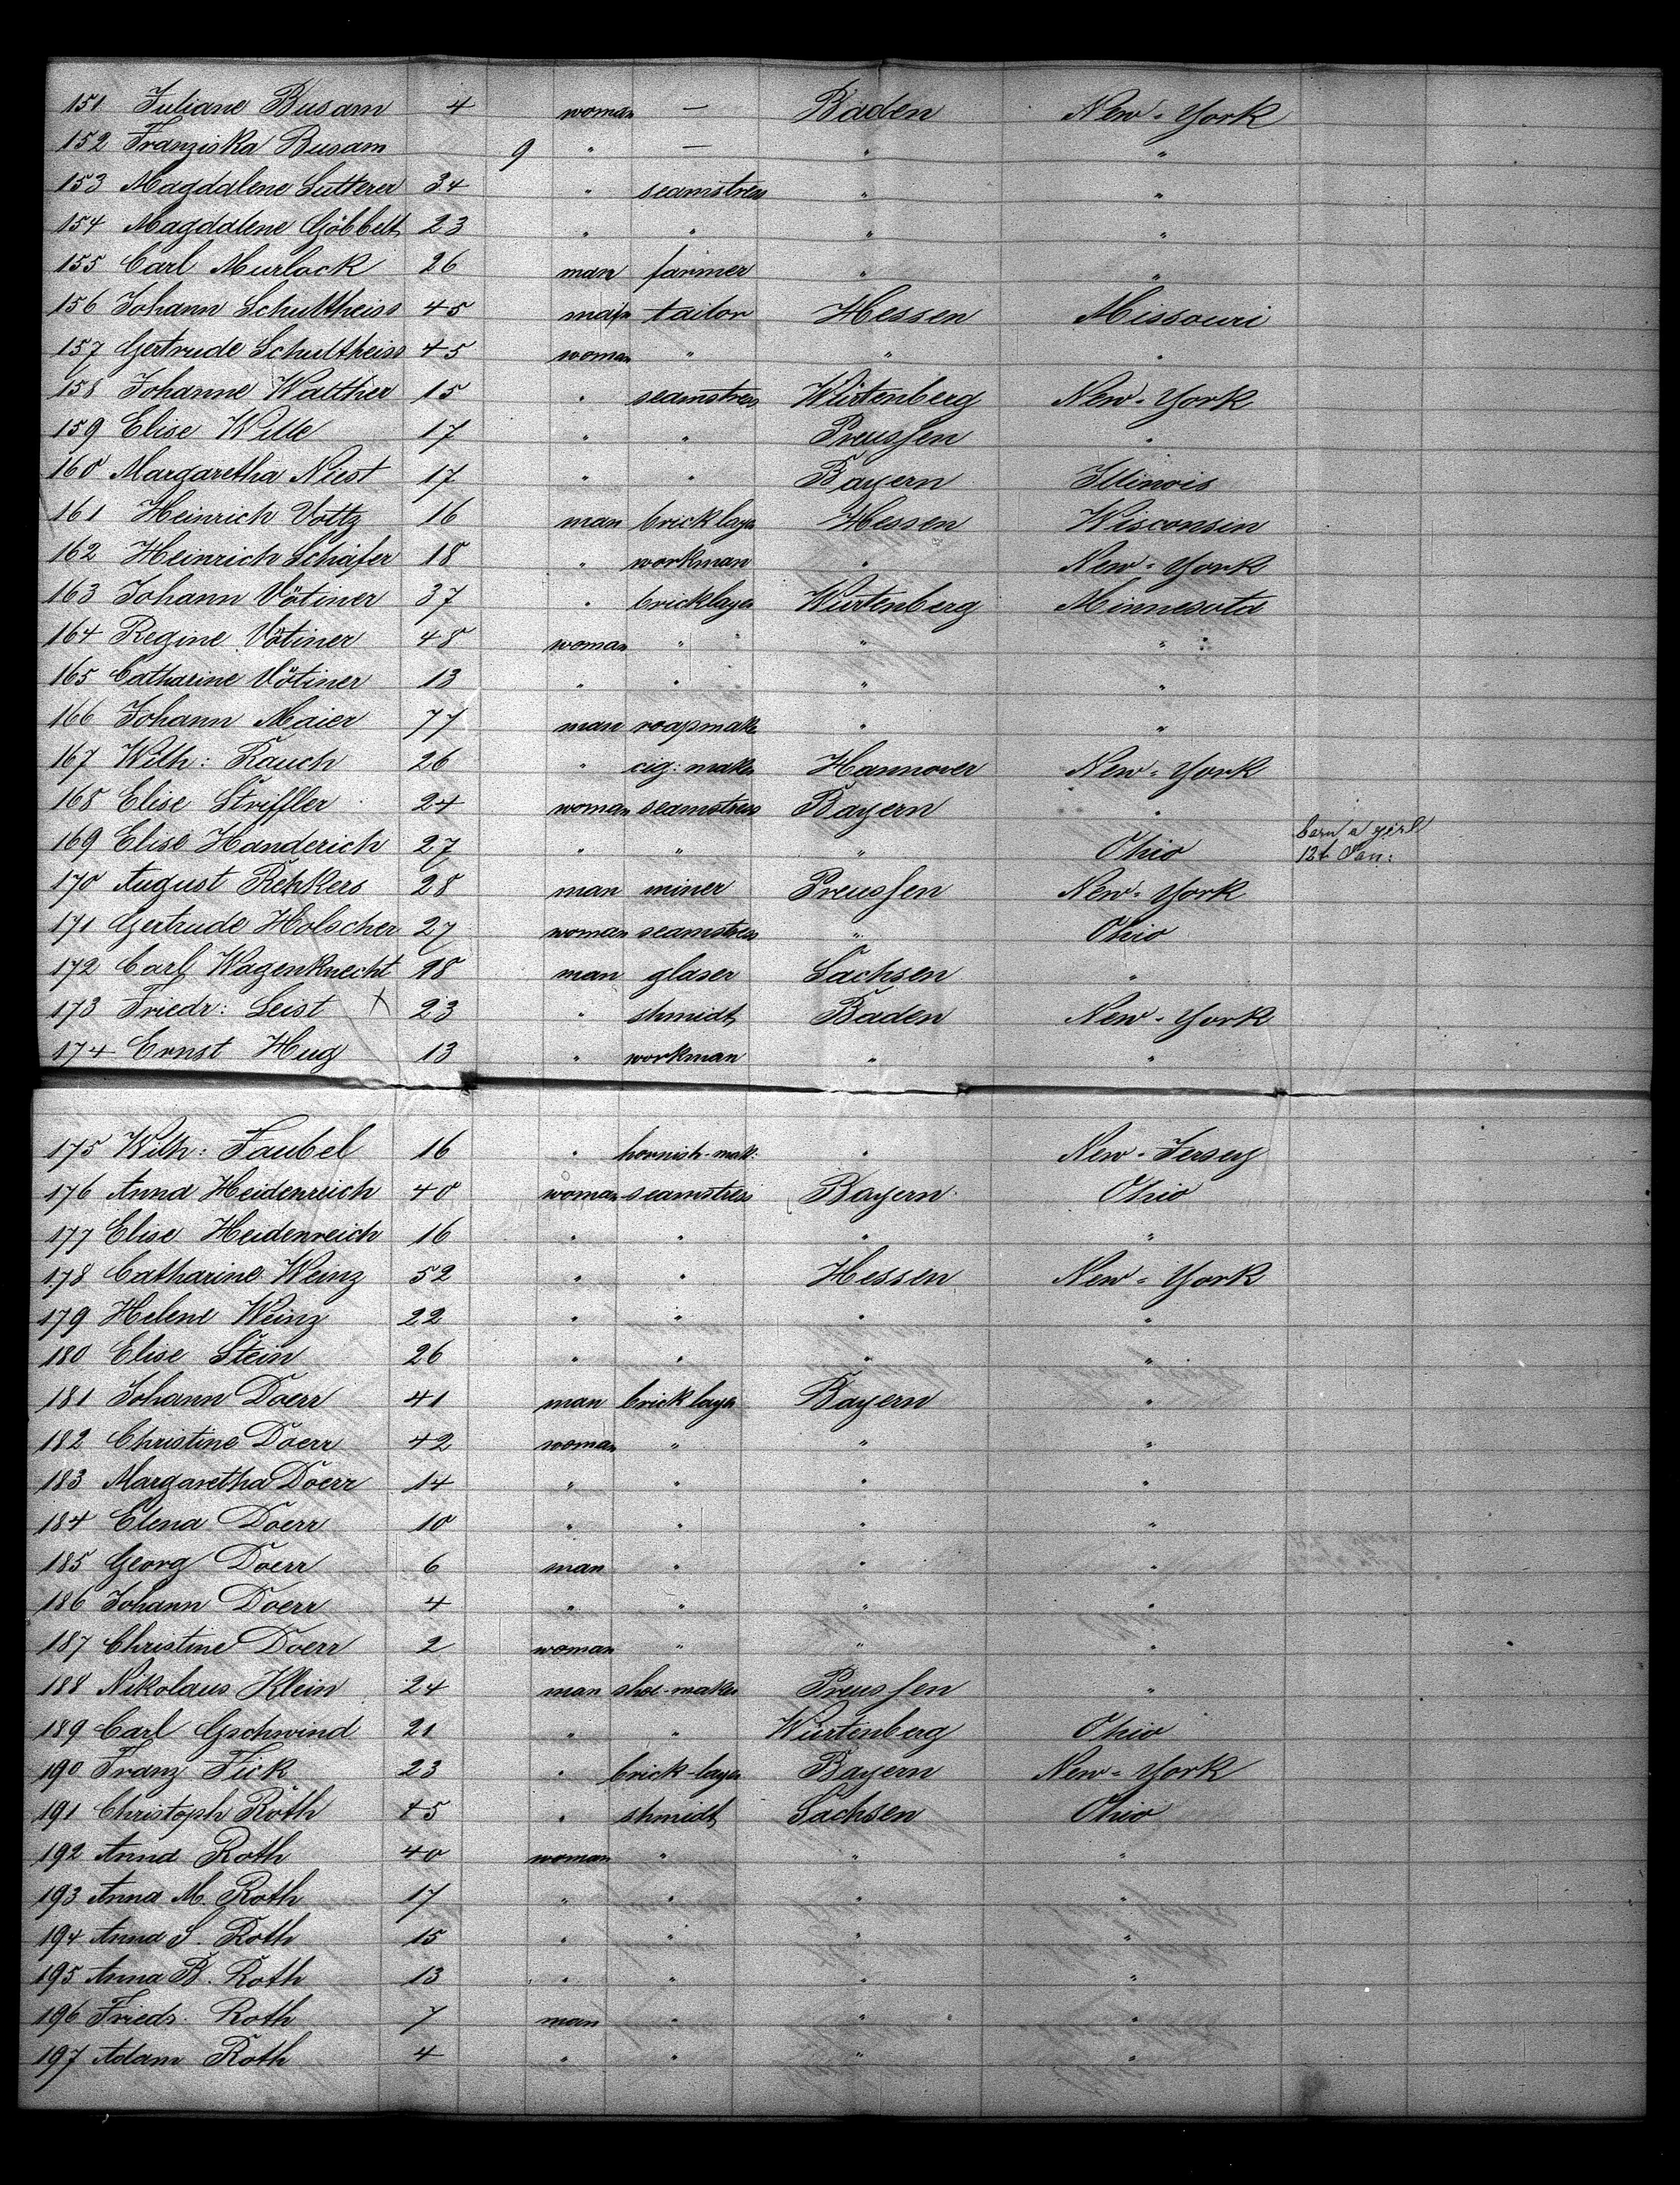 151 Juliane Busam 4 woman — Baden New-York
152 Franziska Busam 9 " — " "
153 Magdalene Sutterer 34 " seamstress " "
154 Magdalene Göbbelt 23 " " " "
155 Carl Murlock 26 man farmer " "
156 Johann Schultheiss 45 man tailor Hessen Missouri
157 Gertrude Schultheiss 45 woman " " "
158 Johanne Walther 15 " seamstress Würtenberg New-York
159 Elise Wille 17 " " Preussen "
160 Margaretha Niest 17 " " Bayern Illinois
161 Heinrich Voltz 16 man bricklayer Hessen Wisconsin
162 Heinrich Schäfer 18 " workman " New-York
163 Johann Vötiner 37 " bricklayer Würtenberg Minnesota
164 Regine Vötiner 48 woman " " "
165 Catharine Vötiner 13 " " " "
166 Johann Maier 77 man roapmake " "
167 Wilh: Rauch 26 " cig: maker Hannover New-York
168 Elise Striffler 24 woman seamstress Bayern "
169 Elise Handerich 27 " " " Ohio born a girl
12t Jan:
170 August Rehkers 28 man miner Preussen New-York
171 Gertrude Holscher 27 woman seamstress " Ohio
172 Carl Wagenknecht 18 man glaser Sachsen "
173 Friedr: Leist X 23 " shmidt Baden New-York
174 Ernst Hug 13 " workman " "
175 Wilh: Faubel 16 " hornish-mak: " New-Jersey
176 Anna Heidenreich 40 woman seamstress Bayern Ohio
177 Elise Heidenreich 16 " " " "
178 Catharine Weinz 52 " " Hessen New-York
179 Helene Weinz 22 " " " "
180 Elise Stein 26 " " " "
181 Johann Doerr 41 man bricklayer Bayern "
182 Christine Doerr 42 woman " " "
183 Margaretha Doerr 14 " " " "
184 Elena Doerr 10 " " " "
185 Georg Doerr 6 man " " "
186 Johann Doerr 4 " " " "
187 Christine Doerr 2 woman " " "
188 Nikolaus Klein 24 man shoe-maker Preussen "
189 Carl Gschwind 21 " " Würtenberg Ohio
190 Franz Fick 23 " brick-layer Bayern New-York
191 Christoph Roth 45 " shmidt Sachsen Ohio
192 Anna Roth 40 woman " " "
193 Anna M. Roth 17 " " " "
194 Anna S. Roth 15 " " " "
195 Anna B. Roth 13 " " " "
196 Friedr. Roth 7 man " " "
197 Adam Roth 4 " " " "